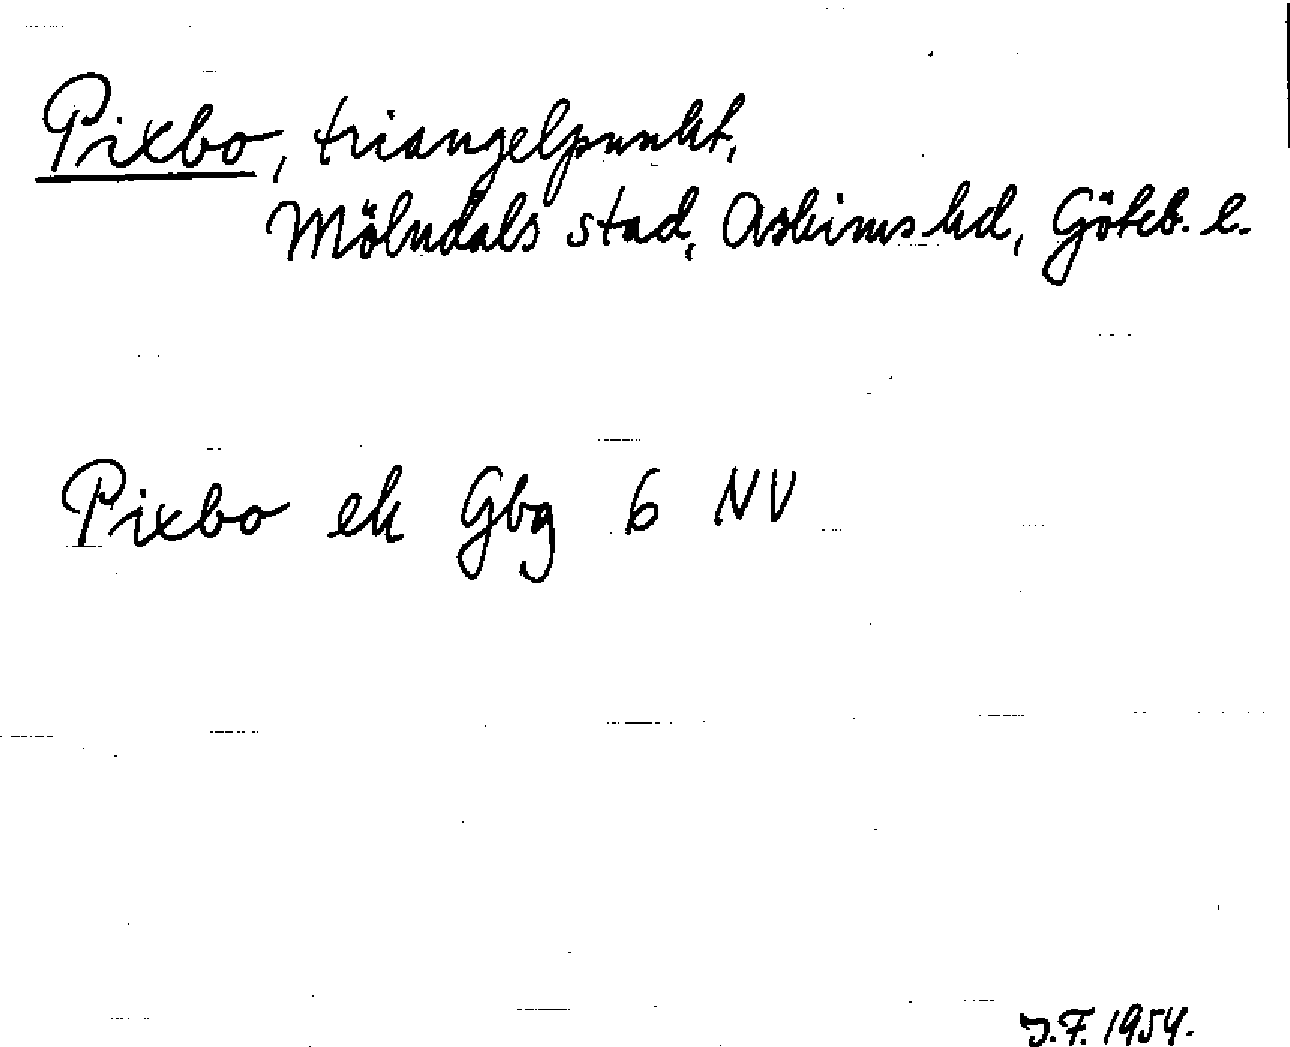 Pixbo, triangelpunkt,
Mölndals stad, Askims hd, Göteb. l.
Pixbo ek Gbg 6 NV
J.F. 1954.